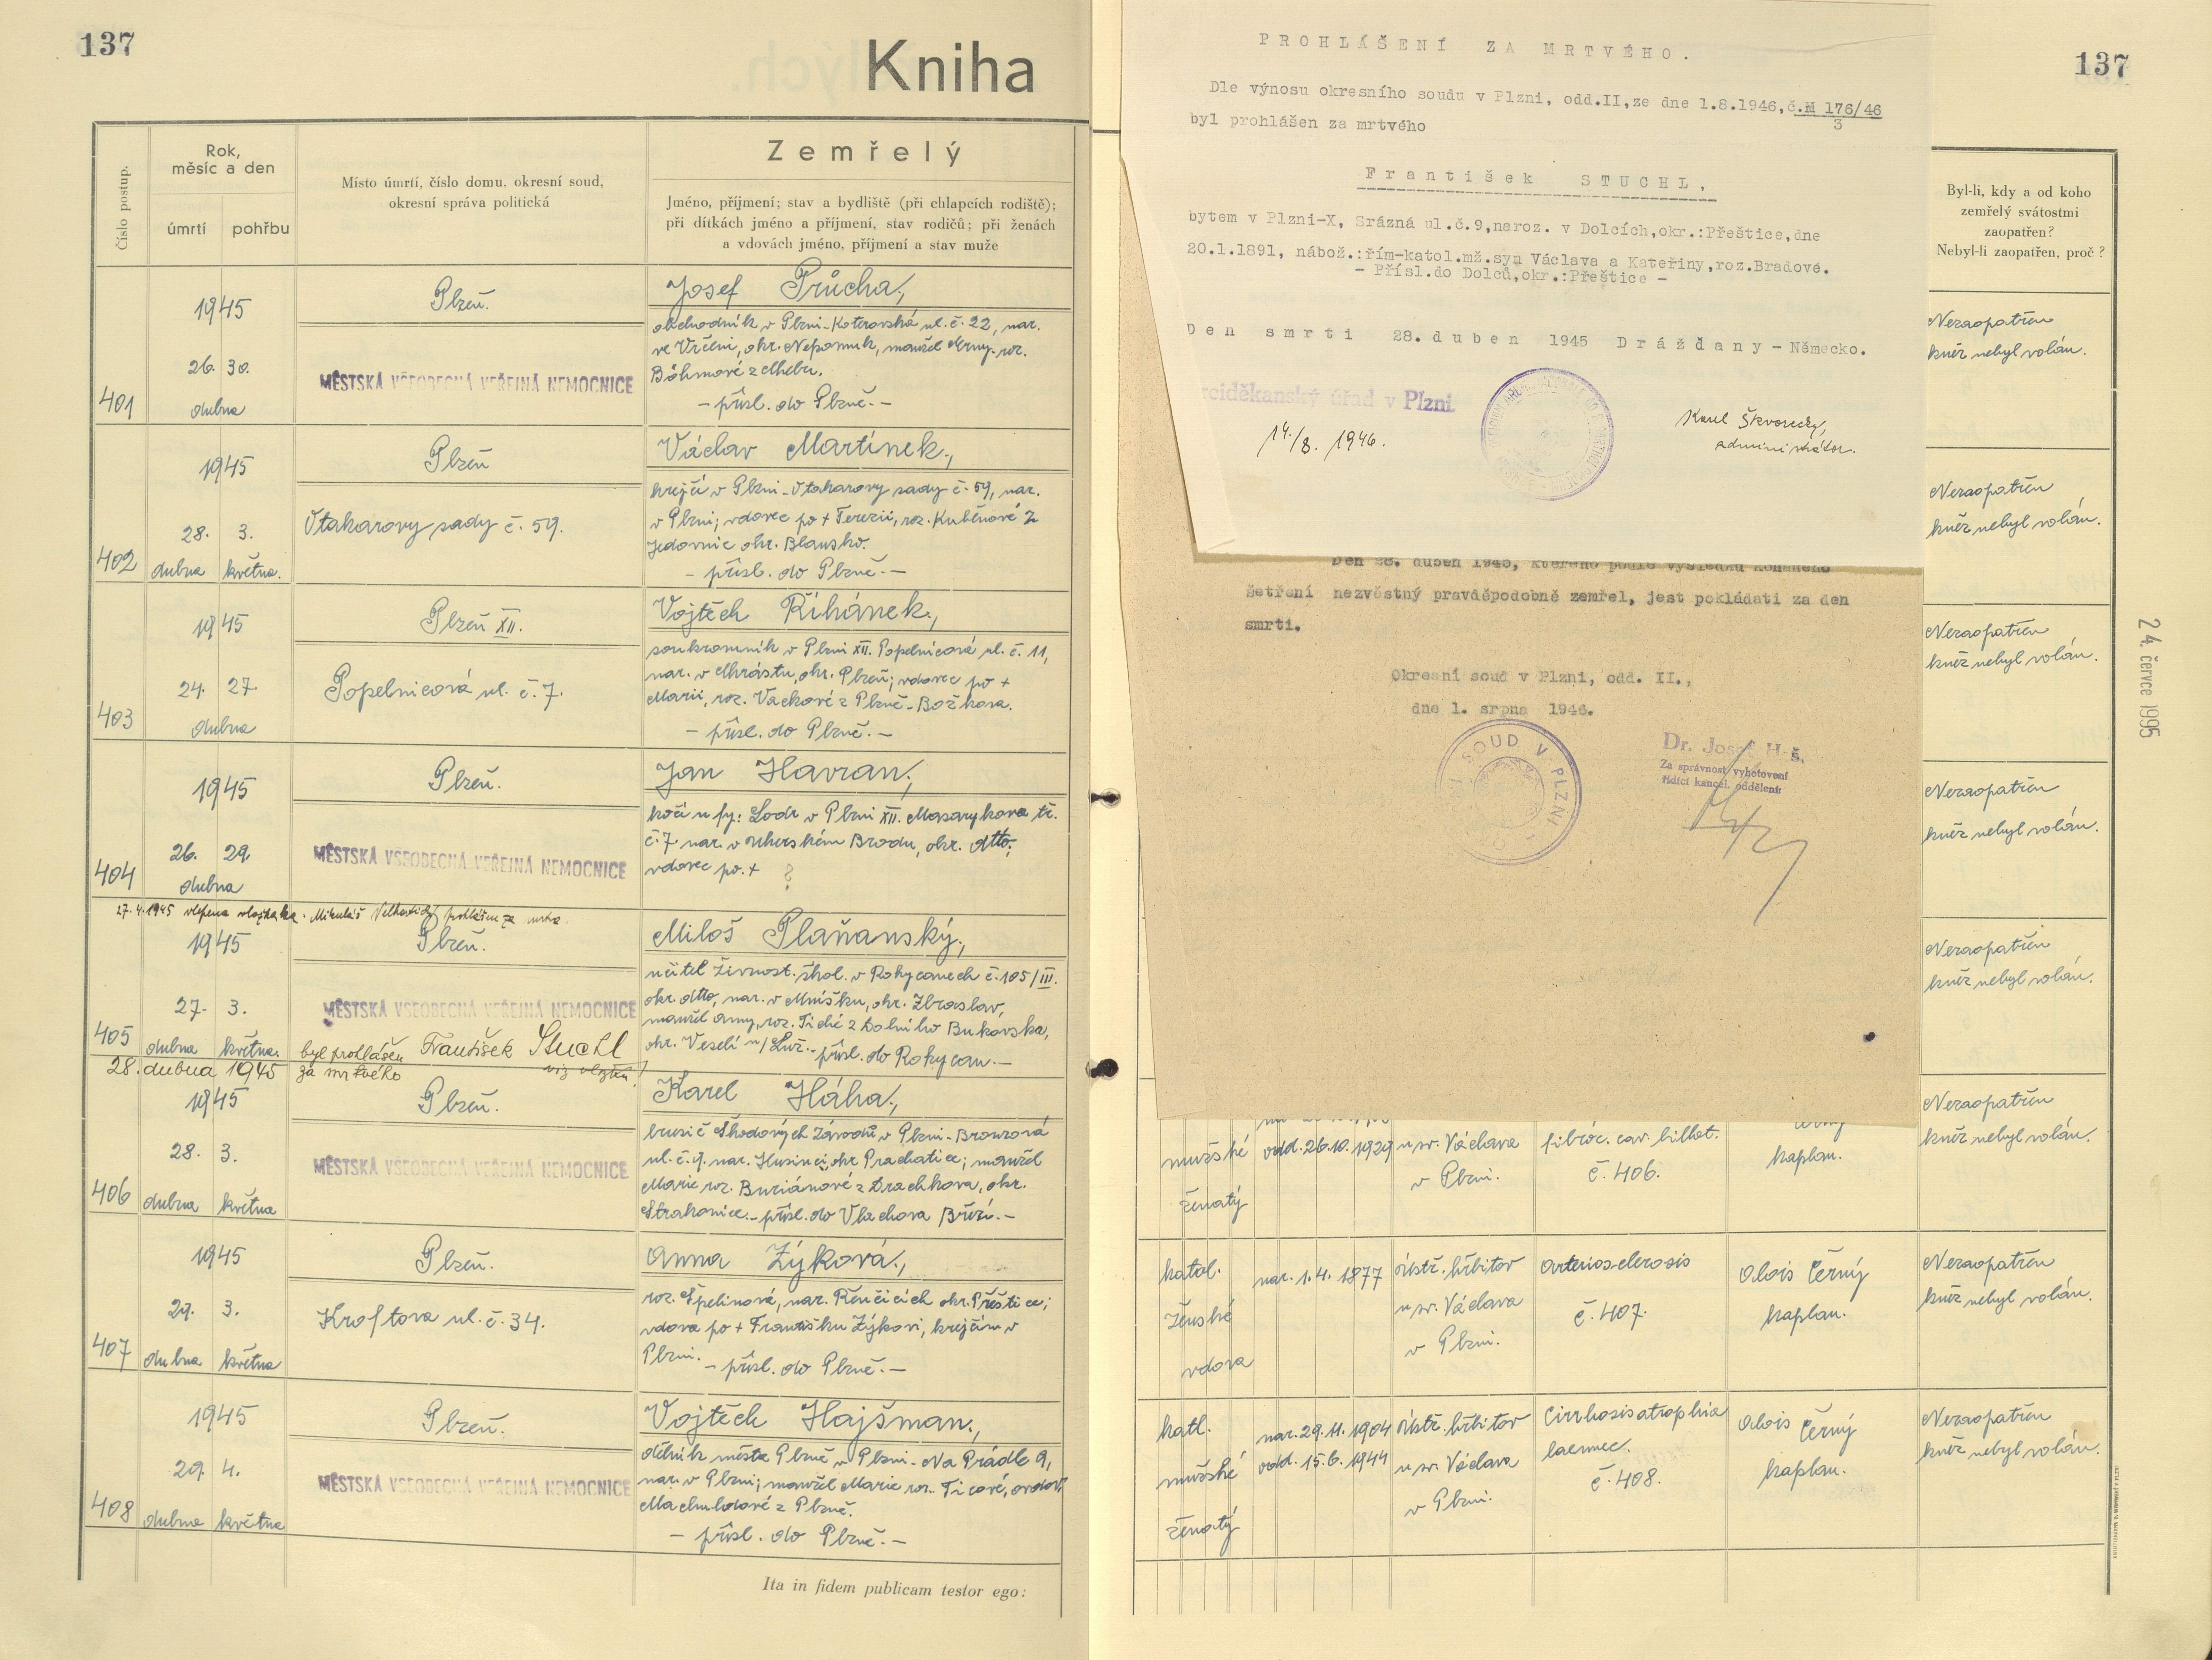 137
Kniha
Číslo postup.
Rok,
měsíc a den
úmrtí
pohřbu
Místo úmrtí, číslo domu, okresní soud,
okresní správa politická
Zemřelý
Jméno, příjmení; stav a bydliště (při chlapcích rodiště);
při dítkách jméno a příjmení, stav rodičů; při ženách
a vdovách jméno, příjmení a stav muže
401
1945
26. 30.
dubna
Plzeň.
MĚSTSKÁ VŠEOBECNÁ VEŘEJNÁ NEMOCNICE
Josef Průcha,
obchodník v Plzni-Koterovská ul. č. 22, nar.
ve Vrčeni, okr. Nepomuk, manžel Anny roz.
Böhmové z Chebu.
- přísl. do Plzně. -
402
1945
28. 3.
dubna května.
Plzeň
Otakarovy sady č. 59.
Václav Martínek,
krejčí v Plzni-Otakarovy sady č. 59, nar.
v Plzni; vdovec po + Terezii, roz. Kuběnové z
Jedovnic okr. Blansko.
- přísl. do Plzně. -
403
1945
24. 27.
dubna
Plzeň XII.
Popelnicová ul. č. 7.
Vojtěch Říhánek,
soukromník v Plzni XII. Popelnicová ul. č. 11,
nar. v Chrástu, okr. Plzeň; vdovec po +
Marii, roz. Vackové z Plzně-Božkova.
- přísl. do Plzně. -
404
1945
26. 29.
dubna
Plzeň.
MĚSTSKÁ VŠEOBECNÁ VEŘEJNÁ NEMOCNICE
Jan Havran,
kočí u fy: Lodr v Plzni XII. Masarykova tř.
č. 7 nar. v Uherském Brodu, okr. dtto;
vdovec po. + ?
27.4.1945 vlepena vložka Mikuláš prohlášen za mrtva
405
1945
27. 3.
dubna května.
Plzeň.
MĚSTSKÁ VŠEOBECNÁ VEŘEJNÁ NEMOCNICE
Miloš Plaňanský,
učitel živnost. škol. v Rokycanech č. 105/III.
okr. dtto, nar. v Mníšku, okr. Zbraslav,
manžel Anny, roz. Tiché z Dolního Bukovska,
okr. Veselí n/Luž. - přísl. do Rokycan. -
28. dubna 1945 byl prohlášen František Stuchl
za mrtvého viz vložku!
406
1945
28. 3.
dubna května
Plzeň.
MĚSTSKÁ VŠEOBECNÁ VEŘEJNÁ NEMOCNICE
Karel Háha,
brusič Škodových závodů v Plzni-Bronzová
ul. č. 9. nar. Husinci, okr Prachatice; manžel
Marie roz. Buriánové z Drachkova, okr.
Strakonice. - přísl. do Vlachova Březí. -
407
1945
29. 3.
dubna května
Plzeň.
Kroftova ul. č. 34.
Anna Zýková,
roz. Špelinová, nar. Řenčicích okr. Přeštice;
vdova po + Františku Zýkovi, krejčím v
Plzni. - přísl. do Plzně. -
408
1945
29. 4.
dubna května
Plzeň.
MĚSTSKÁ VŠEOBECNÁ VEŘEJNÁ NEMOCNICE
Vojtěch Hajšman,
dělník města Plzně v Plzni-Na Prádle 9,
nar. v Plzni; manžel Marie roz. Ticové, ovdov.
Machuldové z Plzně.
- přísl. do Plzně. -
Ita in fidem publicam testor ego:
137
PROHLÁŠENÍ ZA MRTVÉHO.
Dle výnosu okresního soudu v Plzni, odd.II,ze dne 1.8.1946,č.M 176/46
3
byl prohlášen za mrtvého
František STUCHL,
bytem v Plzni-X, Srázná ul.č.9,naroz. v Dolcích,okr.:Přeštice,dne
20.1.1891, nábož.:řím-katol.mž.syn Václava a Kateřiny,roz.Bradové.
- Přísl.do Dolců,okr.:Přeštice -
Den smrti 28. duben 1945 Drážďany - Německo.
rciděkanský úřad v Plzni
14./8. 1946.
Karel Škvorecký,
administrátor.
Den 28. duben 1945, kterého podle výsledku konaného
šetření nezvěstný pravděpodobně zemřel, jest pokládati za den
smrti.
Okresní soud v Plzni, odd. II.,
dne 1. srpna 1946.
SOUD V PLZNI
Dr. Josef H š.
Za správnost vyhotovení
řídící kancel. oddělení:
Byl-li, kdy a od koho
zemřelý svátostmi
zaopatřen?
Nebyl-li zaopatřen, proč ?
Nezaopatřen
kněz nebyl volán.
Nezaopatřen
kněz nebyl volán.
Nezaopatřen
kněz nebyl volán.
Nezaopatřen
kněz nebyl volán.
Nezaopatřen
kněz nebyl volán.
Nezaopatřen
kněz nebyl volán.
24. července 1995
mužské
ženatý
odd. 26.10. 1929
u sv. Václava
v Plzni.
fibroc. cav. billat.
č. 406.
kaplan.
katol.
ženské
vdova
nar. 1. 4. 1877
ústř. hřbitov
u sv. Václava
v Plzni.
Arteriosclerosis
č. 407.
Alois Černý
kaplan.
Nezaopatřen
kněz nebyl volán.
katl.
mužské
ženatý
nar. 29. 11. 1904
odd. 15. 6. 1944
ústř. hřbitov
u sv. Václava
v Plzni.
Cirrhosis atrophia
laennec.
č. 408.
Alois Černý
kaplan.
Nezaopatřen
kněz nebyl volán.